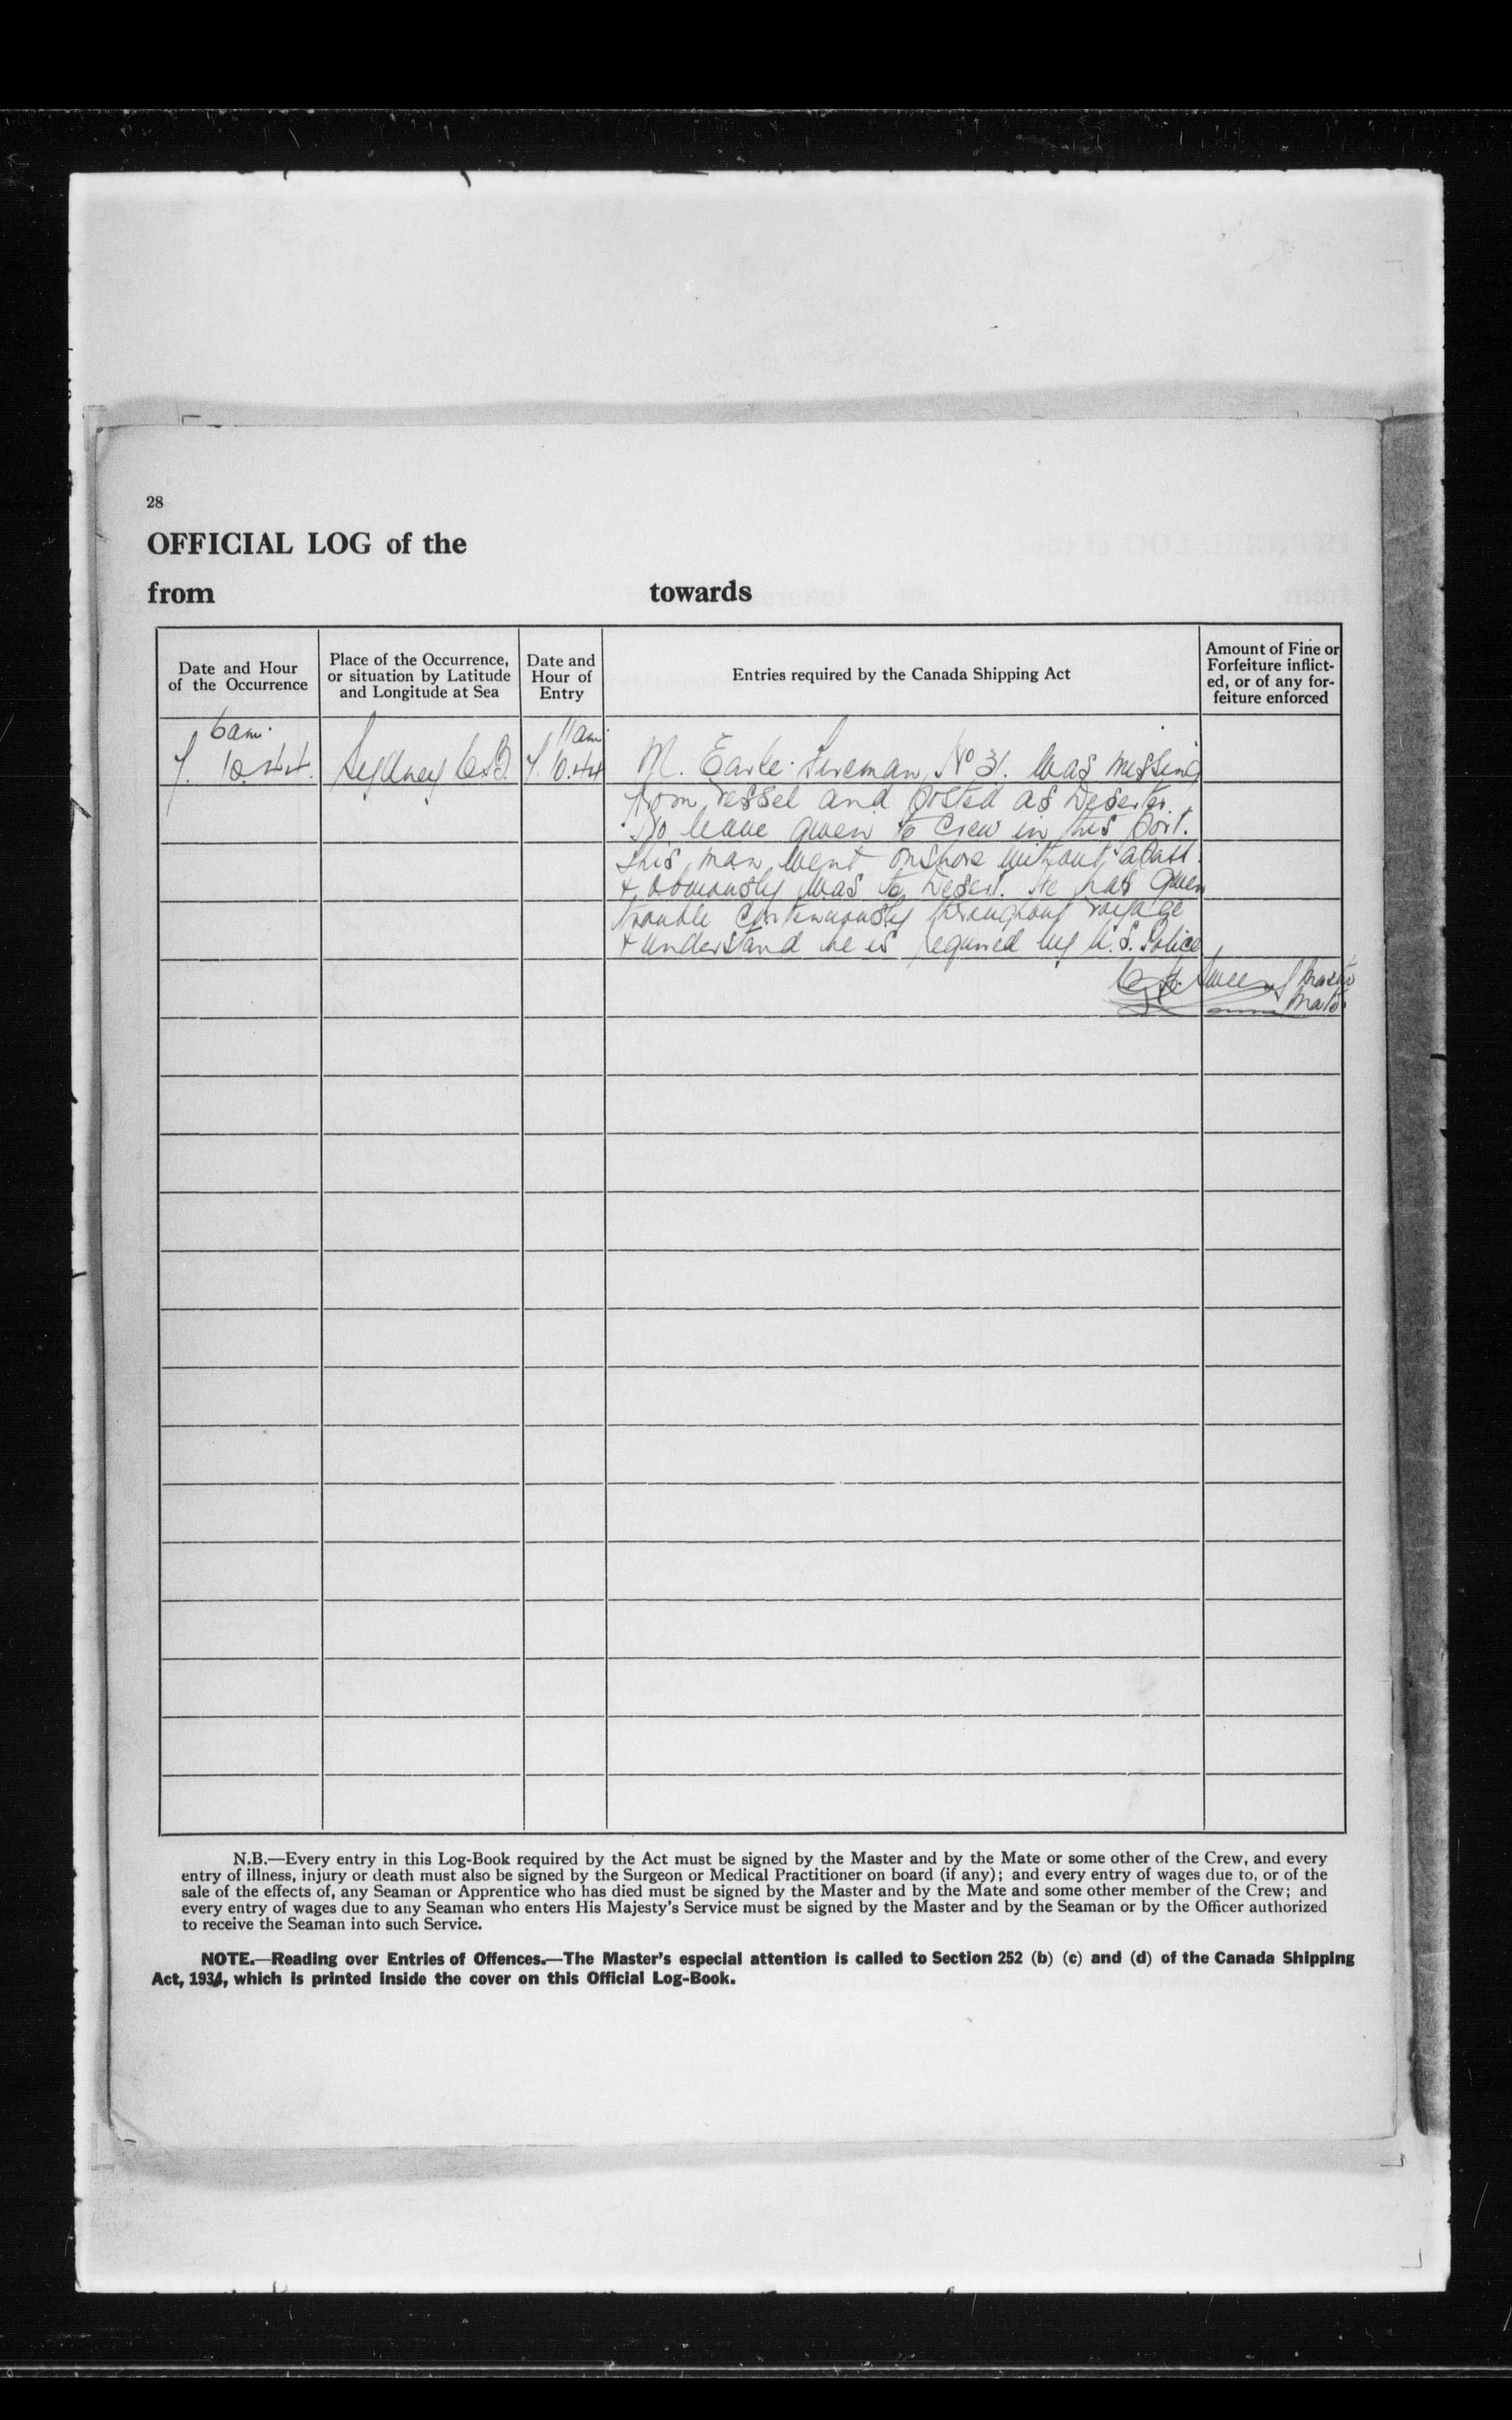 28
OFFICIAL LOG of the
from towards
Date and Hour of the Occurrence
Place of the Occurrence, or situation by Latitude and Longitude at Sea
Date and Hour of Entry
Entries required by the Canada Shipping Act
Amount of Fine or Forfeiture inflict-ed, or of any for-feiture enforced
6 am. 11 am
7. 10.44. Sydney C.B. 7.10.44 M. Earle. Fireman, No 31. was missing
from vessel and posted as Deserter.
No leave given to crew in this port.
This man went onshore without a pass
& obviously was to Desert. He has given
trouble continuously throughout voyage
& understand he is required by U.S. Police
Master
Mate
N.B.—Every entry in this Log-Book required by the Act must be signed by the Master and by the Mate or some other of the Crew, and every
entry of illness, injury or death must also be signed by the Surgeon or Medical Practitioner on board (if any); and every entry of wages due to, or of the
sale of the effects of, any Seaman or Apprentice who has died must be signed by the Master and by the Mate and some other member of the Crew; and
every entry of wages due to any Seaman who enters His Majesty's Service must be signed by the Master and by the Seaman or by the Officer authorized
to receive the Seaman into such Service.
NOTE.—Reading over Entries of Offences.—The Master's especial attention is called to Section 252 (b) (c) and (d) of the Canada Shipping
Act, 1934, which is printed inside the cover on this Official Log-Book.